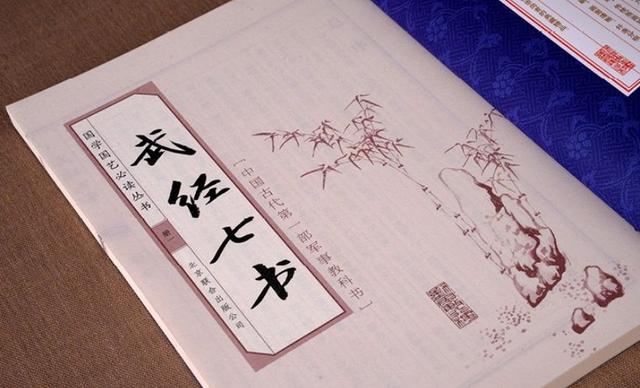 武经七书
国学国艺必读丛书
卷一
北京联合出版公司
[中国古代第一部军事教科书]